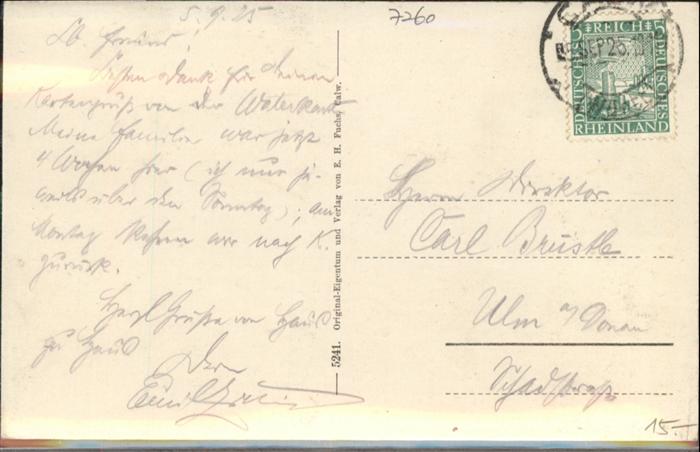 5. 9. 25
7260
Lb. Freund!
Besten Dank für Deinen
Kartengruß von der Waterkant
Meine Familie war jetzt
4 Wochen hier (ich nur je-
weils über den Sonntag), am
Montag kehren wir nach K.
zurück.
Herzl. Grüße von Haus
zu Haus
Dein
Emil
5241. Original-Eigentum und Verlag von E. H. Fuchs, Calw.
5 REICH 5
DEUTSCHES
DEUTSCHES
RHEINLAND
SEP 25
Herrn Direktor
Carl Brüstle
Ulm a/Donau
Schadstraße
15.-